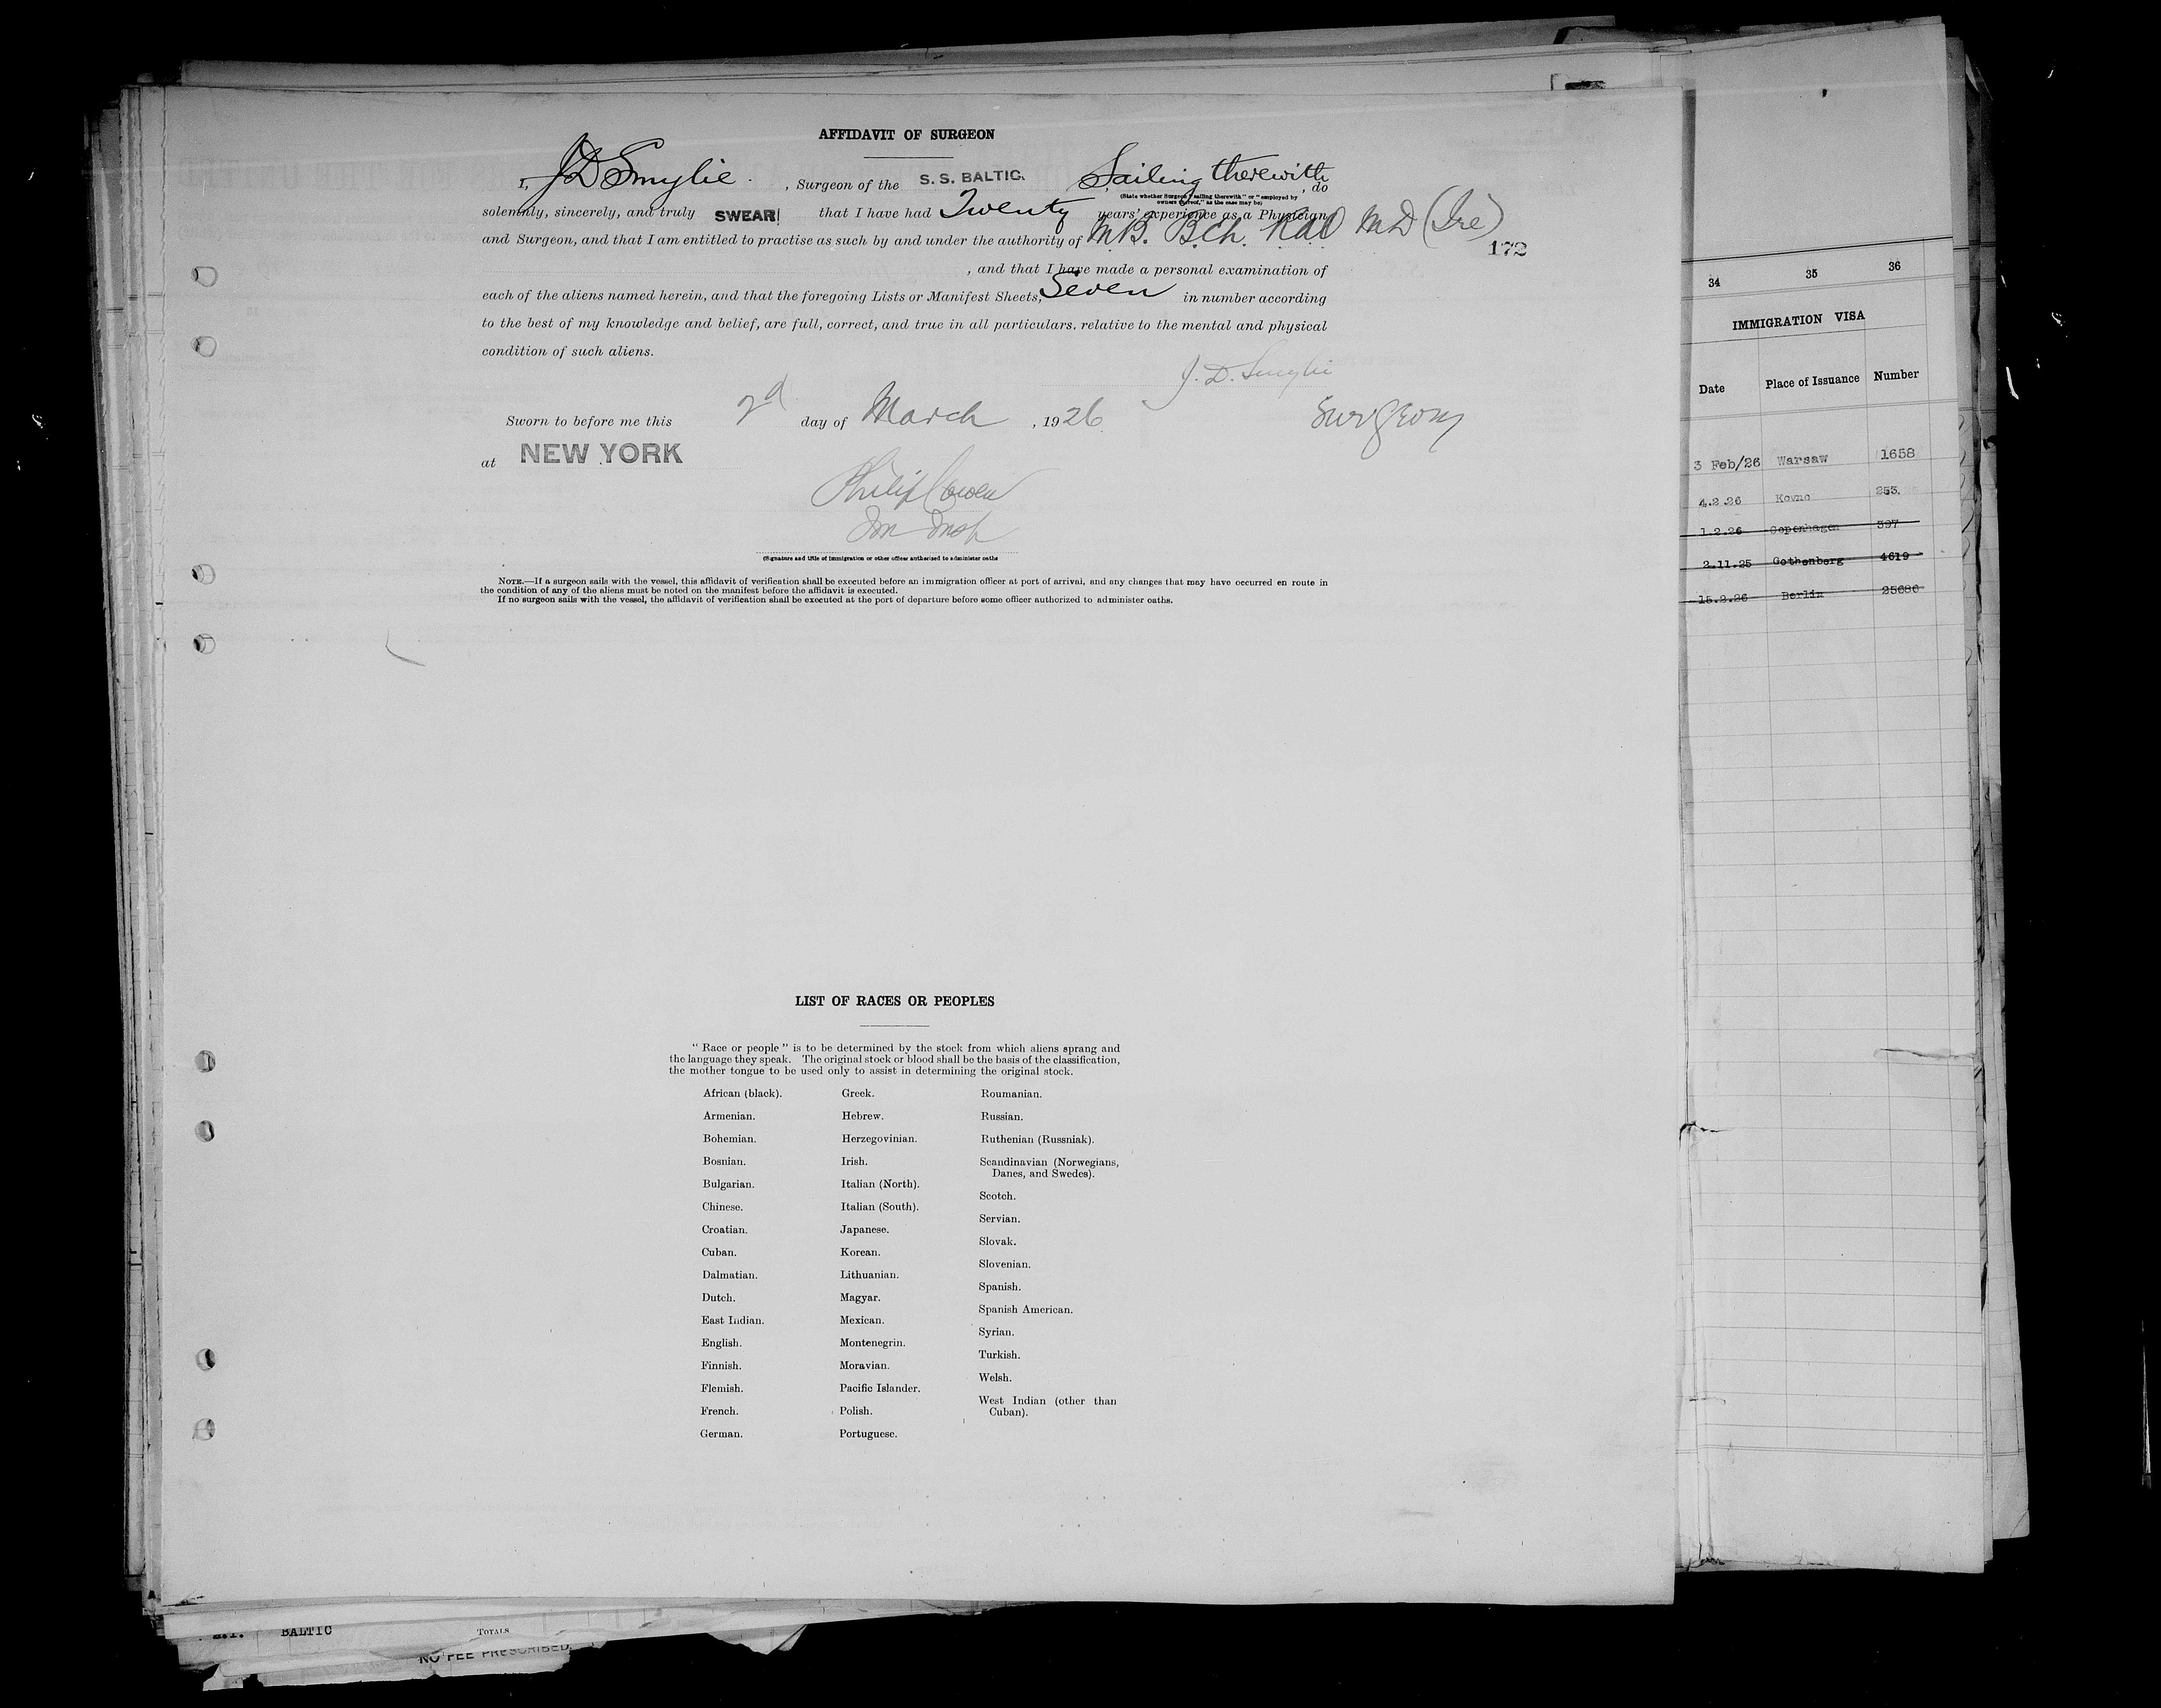 AFFIDAVIT OF SURGEON
I, J D Smylie. , Surgeon of the S. S. BALTIC. Sailing therewith , do
(State whether Surgeon "sailing therewith" or "employed by
owners thereof," as the case may be)
solemnly, sincerely, and truly SWEAR that I have had Twenty years' experience as a Physician
and Surgeon, and that I am entitled to practise as such by and under the authority of M.B. B.Ch. M D (Ire)
172
, and that I have made a personal examination of
each of the aliens named herein, and that the foregoing Lists or Manifest Sheets, Seven in number according
to the best of my knowledge and belief, are full, correct, and true in all particulars. relative to the mental and physical
condition of such aliens.
J. D. Smylie
Surgeon
Sworn to before me this 2d day of March , 1926
at NEW YORK
Philip Cowen
Im Insp
(Signature and title of immigration or other officer authorized to administer oaths
NOTE.—If a surgeon sails with the vessel, this affidavit of verification shall be executed before an immigration officer at port of arrival, and any changes that may have occurred en route in
the condition of any of the aliens must be noted on the manifest before the affidavit is executed.
If no surgeon sails with the vessel, the affidavit of verification shall be executed at the port of departure before some officer authorized to administer oaths.
LIST OF RACES OR PEOPLES
" Race or people " is to be determined by the stock from which aliens sprang and
the language they speak. The original stock or blood shall be the basis of the classification,
the mother tongue to be used only to assist in determining the original stock.
African (black).
Armenian.
Bohemian.
Bosnian.
Bulgarian.
Chinese.
Croatian.
Cuban.
Dalmatian.
Dutch.
East Indian.
English.
Finnish.
Flemish.
French.
German.
Greek.
Hebrew.
Herzegovinian.
Irish.
Italian (North).
Italian (South).
Japanese.
Korean.
Lithuanian.
Magyar.
Mexican.
Montenegrin.
Moravian.
Pacific Islander.
Polish.
Portuguese.
Roumanian.
Russian.
Ruthenian (Russniak).
Scandinavian (Norwegians,
Danes, and Swedes).
Scotch.
Servian.
Slovak.
Slovenian.
Spanish.
Spanish American.
Syrian.
Turkish.
Welsh.
West Indian (other than
Cuban).
34 35 36
IMMIGRATION VISA
Date Place of Issuance Number
3 Feb/26 Warsaw 1658
4.2.26 Kovno 253.
1.2.26 Copenhagen 397
2.11.25 Gothenberg 4619
15.2.26 Berlin 25686
BALTIC TOTALS
NO FEE PRESCRIBED